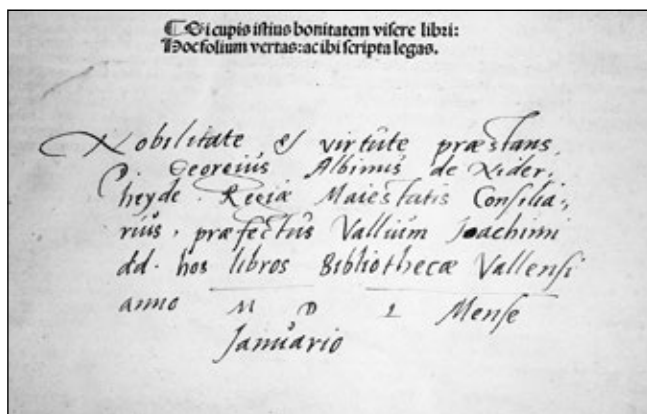 ¶ Si cupis istius bonitatem visere libri:
Hoc folium vertas: ac ibi scripta legas.
Nobilitate & virtute præstans
D. Georgius Albinus de Nider,
heyde. Regiæ Maiestatis Consilia,
rius, præfectus Vallium Joachimi
dd. hos libros Bibliothecæ Vallensi
anno M D L Mense
Januario